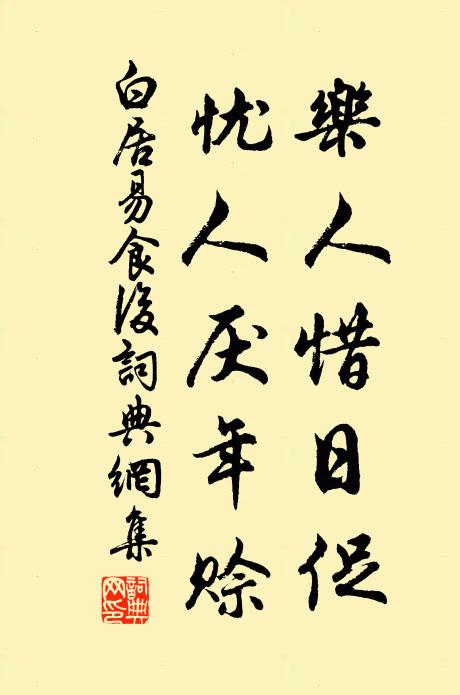 樂人惜日促
忧人厌年賒
白居易食後詞典網集
詞典网印